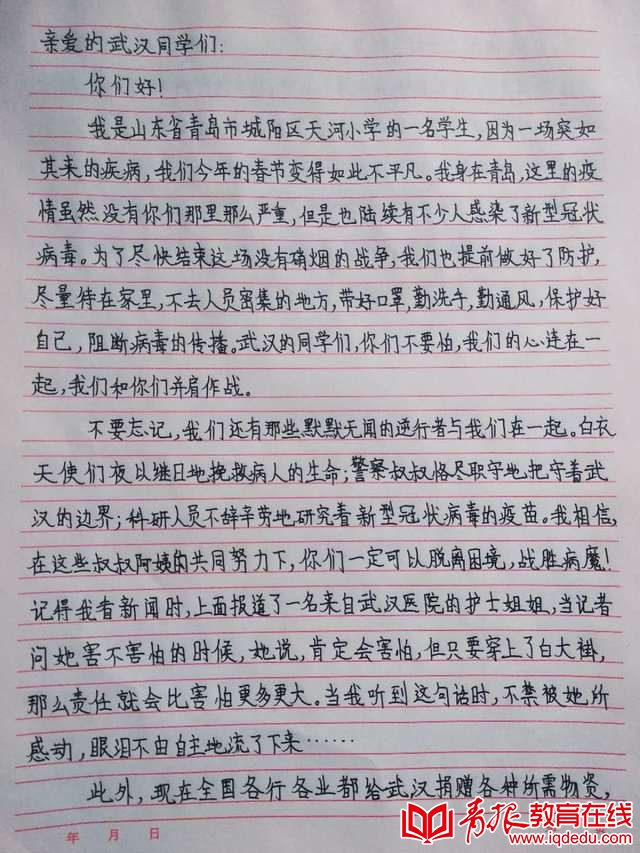 亲爱的武汉同学们:
你们好!
我是山东省青岛市城阳区天河小学的一名学生,因为一场突如
其来的疾病,我们今年的春节变得如此不平凡。我身在青岛,这里的疫
情虽然没有你们那里那么严重,但是也陆续有不少人感染了新型冠状
病毒。为了尽快结束这场没有硝烟的战争,我们也提前做好了防护,
尽量待在家里,不去人员密集的地方,带好口罩,勤洗手,勤通风,保护好
自己,阻断病毒的传播。武汉的同学们,你们不要怕,我们的心连在一
起,我们和你们并肩作战。
不要忘记,我们还有那些默默无闻的逆行者与我们在一起。白衣
天使们夜以继日地挽救病人的生命;警察叔叔恪尽职守地把守着武
汉的边界;科研人员不辞辛劳地研究着新型冠状病毒的疫苗。我相信,
在这些叔叔阿姨的共同努力下,你们一定可以脱离困境,战胜病魔!
记得我看新闻时,上面报道了一名来自武汉医院的护士姐姐,当记者
问她害不害怕的时候,她说,肯定会害怕,但只要穿上了白大褂,
那么责任就会比害怕更多更大。当我听到这句话时,不禁被她所
感动,眼泪不由自主地流了下来……
此外,现在全国各行各业都给武汉捐赠各种所需物资,
年 月 日
青报教育在线
www.iqdedu.com